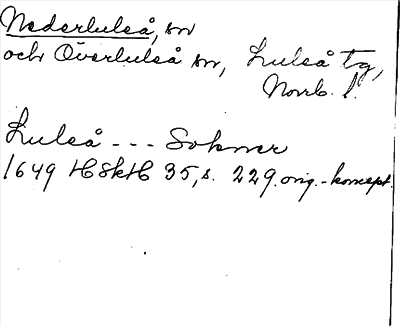 Nederluleå, sn
och Överluleå sn, Luleå tg,
Norrb. l.
Luleå --- Sokner
1649 HSkH 35, s. 229. orig.-koncept.